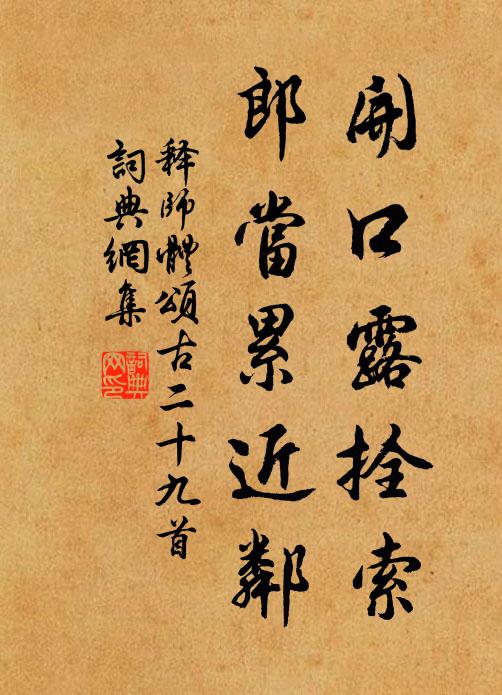 開口露拴索
郎當累近鄰
释師體頌古二十九首
詞典網集
詞典網印